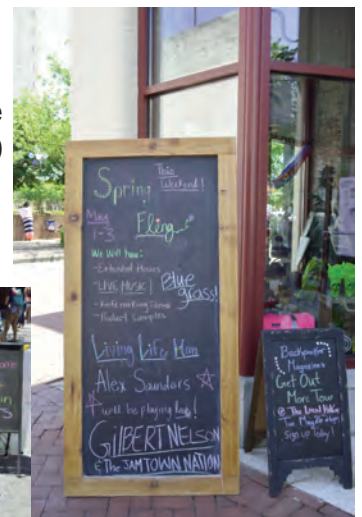 Spring
This
Weekend!
Fling
May
1-3
We Will have:
- Extended Hours
- LIVE MUSIC!
Blue
grass!
- Product Samples
Living Life Man
Alex Saunders
will be playing
GILBERT NELSON
& The JAMTOWN NATION
Backpacker
Magazine's
Get Out
More Tour
@ The Local Hiker
Sign up Today!